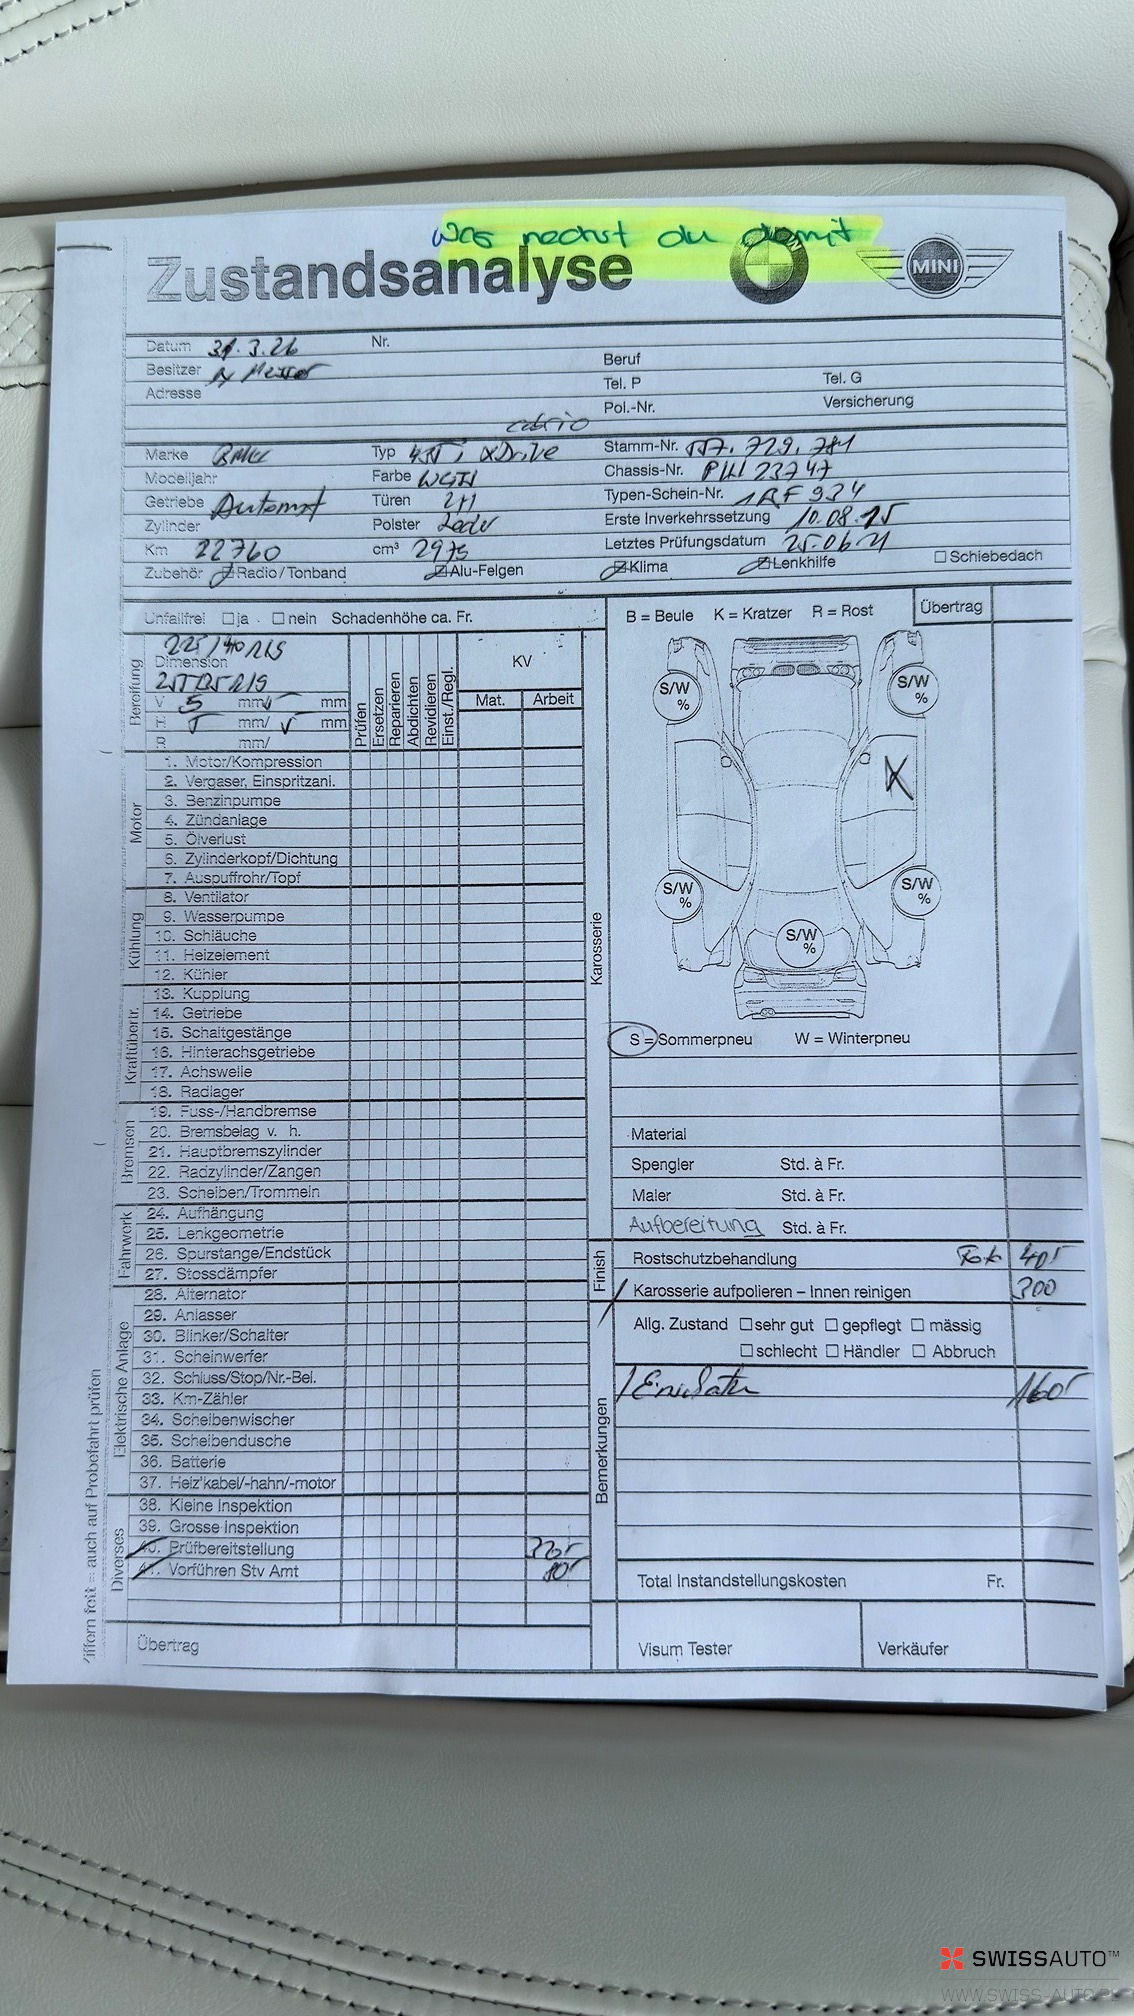 was machst du damit
Zustandsanalyse
MINI
Datum 31.3.26 Nr.
Besitzer
Beruf
Adresse
Tel. P Tel. G
Pol.-Nr. Versicherung
cabrio
Marke BMW Typ xDrive Stamm-Nr. 729.781
Modelljahr Farbe Chassis-Nr. 23747
Getriebe Automat Türen 2/1 Typen-Schein-Nr. 1BF 934
Zylinder Polster Leder Erste Inverkehrssetzung 10.08.15
Km 22760 cm³ 2979 Letztes Prüfungsdatum 25.06.21
Zubehör: Radio/Tonband Alu-Felgen Klima Lenkhilfe Schiebedach
Unfallfrei ja nein Schadenhöhe ca. Fr.
B = Beule K = Kratzer R = Rost Übertrag
Bereifung
225/40 R19
Dimension
255/35 R19
V 5 mm/ mm
H 5 mm/ 5 mm
R mm/
Prüfen
Ersetzen
Reparieren
Abdichten
Revidieren
Einst./Regl.
KV
Mat. Arbeit
Motor
1. Motor/Kompression
2. Vergaser, Einspritzanl.
3. Benzinpumpe
4. Zündanlage
5. Ölverlust
6. Zylinderkopf/Dichtung
7. Auspuffrohr/Topf
Kühlung
8. Ventilator
9. Wasserpumpe
10. Schläuche
11. Heizelement
12. Kühler
Kraftübertr.
13. Kupplung
14. Getriebe
15. Schaltgestänge
16. Hinterachsgetriebe
17. Achswelle
18. Radlager
Bremsen
19. Fuss-/Handbremse
20. Bremsbelag v. h.
21. Hauptbremszylinder
22. Radzylinder/Zangen
23. Scheiben/Trommeln
Fahrwerk
24. Aufhängung
25. Lenkgeometrie
26. Spurstange/Endstück
27. Stossdämpfer
Elektrische Anlage
28. Alternator
29. Anlasser
30. Blinker/Schalter
31. Scheinwerfer
32. Schluss/Stop/Nr.-Bel.
33. Km-Zähler
34. Scheibenwischer
35. Scheibendusche
36. Batterie
37. Heiz'kabel/-hahn/-motor
Diverses
38. Kleine Inspektion
39. Grosse Inspektion
40. Prüfbereitstellung 320.-
41. Vorführen Stv Amt 80.-
Übertrag
Ziffern fett = auch auf Probefahrt prüfen
Karosserie
S/W %
S/W %
K
S/W %
S/W %
S/W %
S = Sommerpneu W = Winterpneu
Material
Spengler Std. à Fr.
Maler Std. à Fr.
Aufbereitung Std. à Fr.
Finish
Rostschutzbehandlung
Karosserie aufpolieren – Innen reinigen 300
Allg. Zustand sehr gut gepflegt mässig
schlecht Händler Abbruch
Bemerkungen
160.-
Total Instandstellungskosten Fr.
Visum Tester Verkäufer
SWISSAUTO™